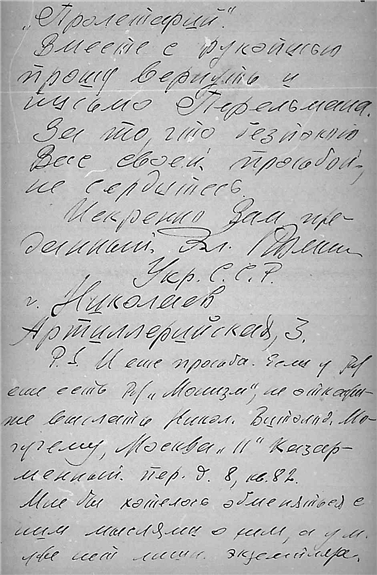 „Пролетарий“.
Вместе с рукописью
прошу вернуть и
письмо Перельмана.
За то, что беспокою
Вас своей просьбой,
не сердитесь
Искренно Вам пре-
данный, Эл.
Укр. С.С.Р.
г. Николаев
Артиллерийская, 3.
P.S. И еще просьба. Если у
еще есть „Монизм“, не откажи-
те выслать Никол. Виталь. Мо-
гучему, Москва „II“ Казар-
менный. пер. д. 8, кв. 82.
Мне бы хотелось обменяться с
ним мыслями о нем, а у м.
нет лишн. экземпляра.